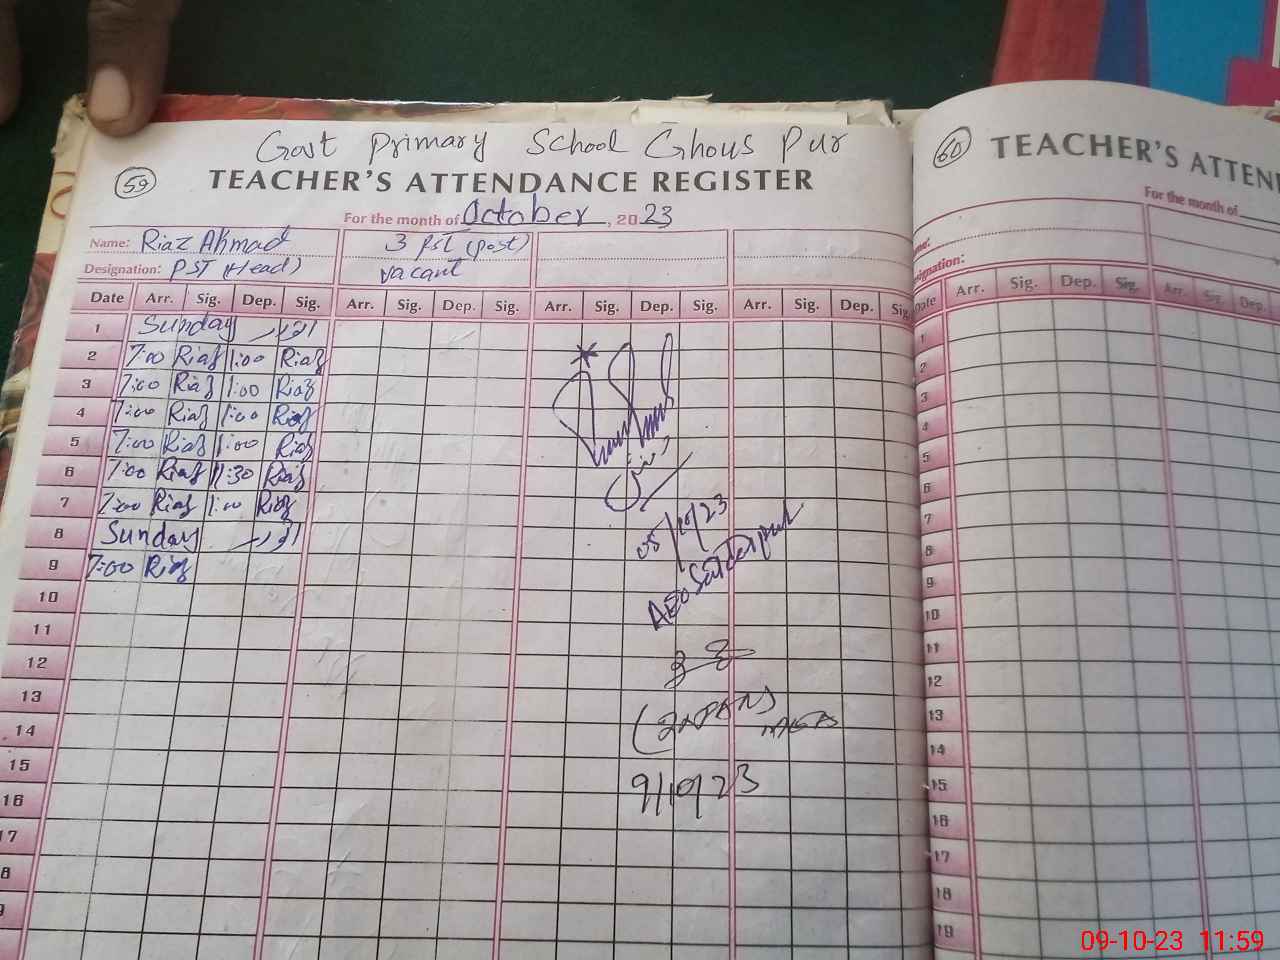 Govt Primary School Ghous Pur
59
TEACHER'S ATTENDANCE REGISTER
For the month of October, 2023
Name: Riaz Ahmad 3 PST (post)
Designation: PST (Head) vacant
Date Arr. Sig. Dep. Sig. Arr. Sig. Dep. Sig. Arr. Sig. Dep. Sig. Arr. Sig. Dep. Sig.
1 Sunday
2 7:00 Riaz 1:00 Riaz
3 7:00 Riaz 1:00 Riaz
4 7:00 Riaz 1:00 Riaz
5 7:00 Riaz 1:00 Riaz
6 7:00 Riaz 11:30 Riaz
7 7:00 Riaz 1:00 Riaz
8 Sunday
9 7:00 Riaz
10
11
12
13
14
15
16
17
8
9
05/10/23
AEO
9/10/23
60
TEACHER'S ATTEN
For the month of
me:
signation:
Date Arr. Sig. Dep. Sig. Arr. Sig. Dep.
1
2
3
4
5
6
7
8
9
10
11
12
13
14
15
16
17
18
19
09-10-23 11:59